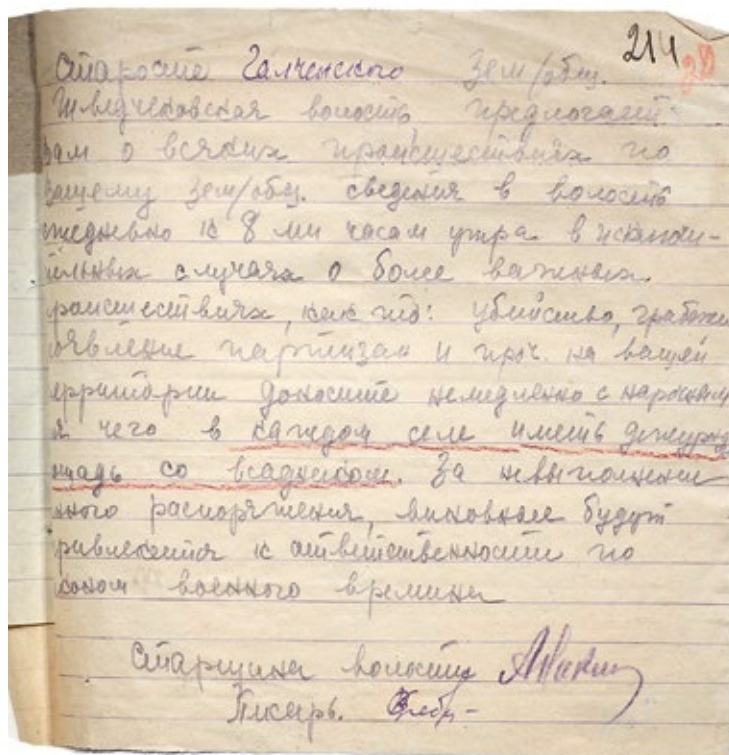 214
38
Старосте Галченского Зем/общ.
Шведчековская волость предлогает
вам о всяких происшествиях по
вашему зем/общ. сведения в волость
ежедневно к 8 ми часам утра в исключи-
ительных случаях о более важных
роисшествиях, как то: убийство, грабежи
оявление партизан и проч. на вашей
ерритории доносите немедленно с нарочным
я чего в каждом селе иметь дежурн
шадь со всадником. За невыполнени
нного распоряжения, виновные будут
ривлекатся к ответственности по
конам военного времини
Старшина волости
Писарь.